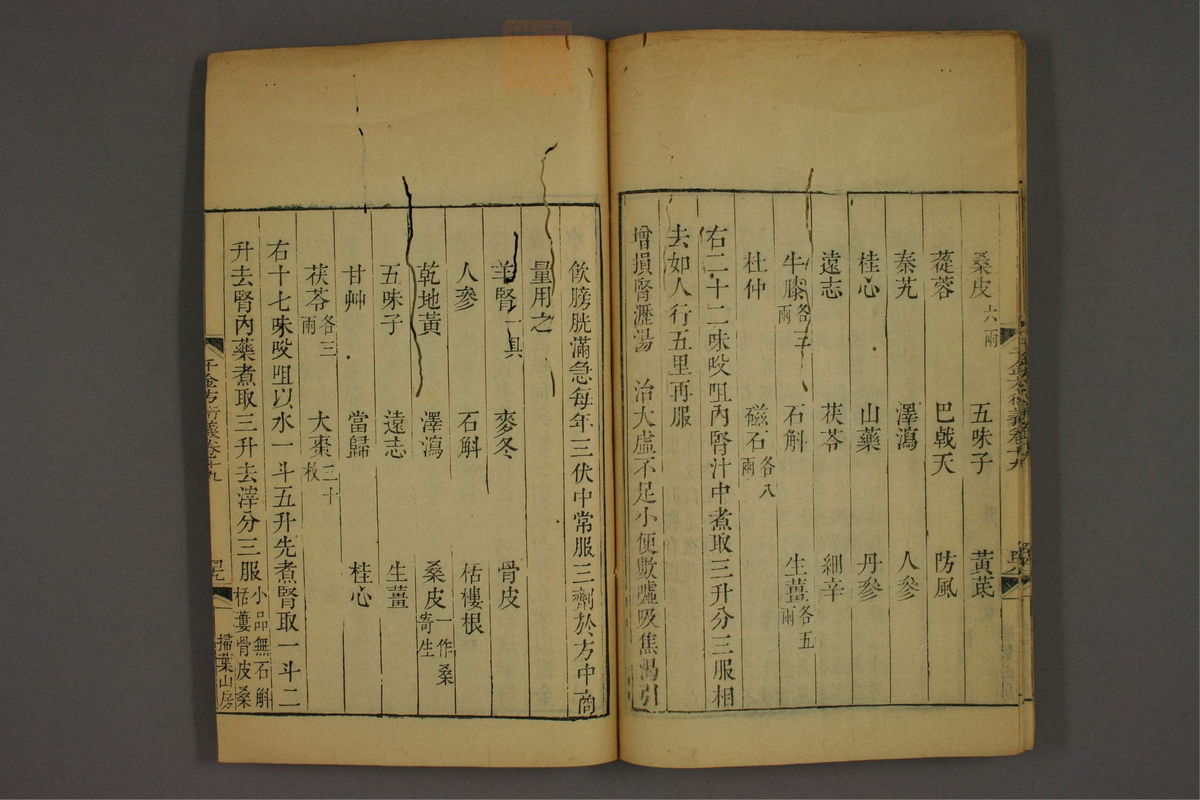 桑皮六兩 五味子 黃芪
蓯蓉 巴戟天 防風
秦艽 澤瀉 人參
桂心 山藥 丹參
遠志 茯苓 細辛
牛膝各三兩 石斛 生薑各五兩
杜仲 磁石各八兩
右二十二味㕮咀內腎汁中煮取三升分三服相
去如人行五里再服
增損腎瀝湯 治大虛不足小便數噓吸焦渴引
飲膀胱滿急每年三伏中常服三劑於方中商
量用之
羊腎一具 麥冬 骨皮
人參 石斛 栝樓根
乾地黃 澤瀉 桑皮一作桑寄生
五味子 遠志 生薑
甘艸 當歸 桂心
茯苓各三兩 大棗三十枚
右十七味㕮咀以水一斗五升先煮腎取一斗二
升去腎內藥煮取三升去滓分三服小品無石斛栝蔞骨皮桑
千金方衍義卷十九 掃葉山房